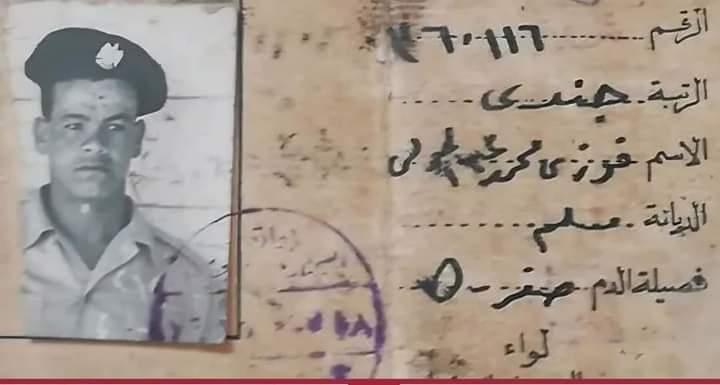 الرقم ٣٦٠١١٦
الرتبة جندى
الاسم فوزى محمد عبد المولى
الديانة مسلم
فصيلة الدم صفر O
لواء